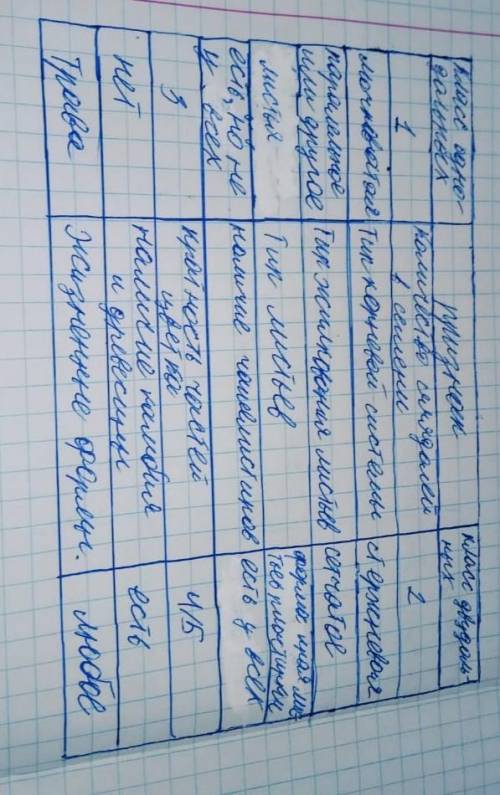 класс одно-
дольных
признак
класс двудоль-
ных
1
количество семядолей
в семени
2
мочковатая
Тип корневой системы
стержневая
параллельное
или другое
Тип жилкования листьев
сетчатое
листья
Тип листьев
форма края лис-
товой пластинки
есть, но не
у всех
наличие чашелистиков
есть у всех
3
кратность частей
цветка
4/5
нет
наличие камбия
и древесины
есть
Трава
Жизненные формы.
любые